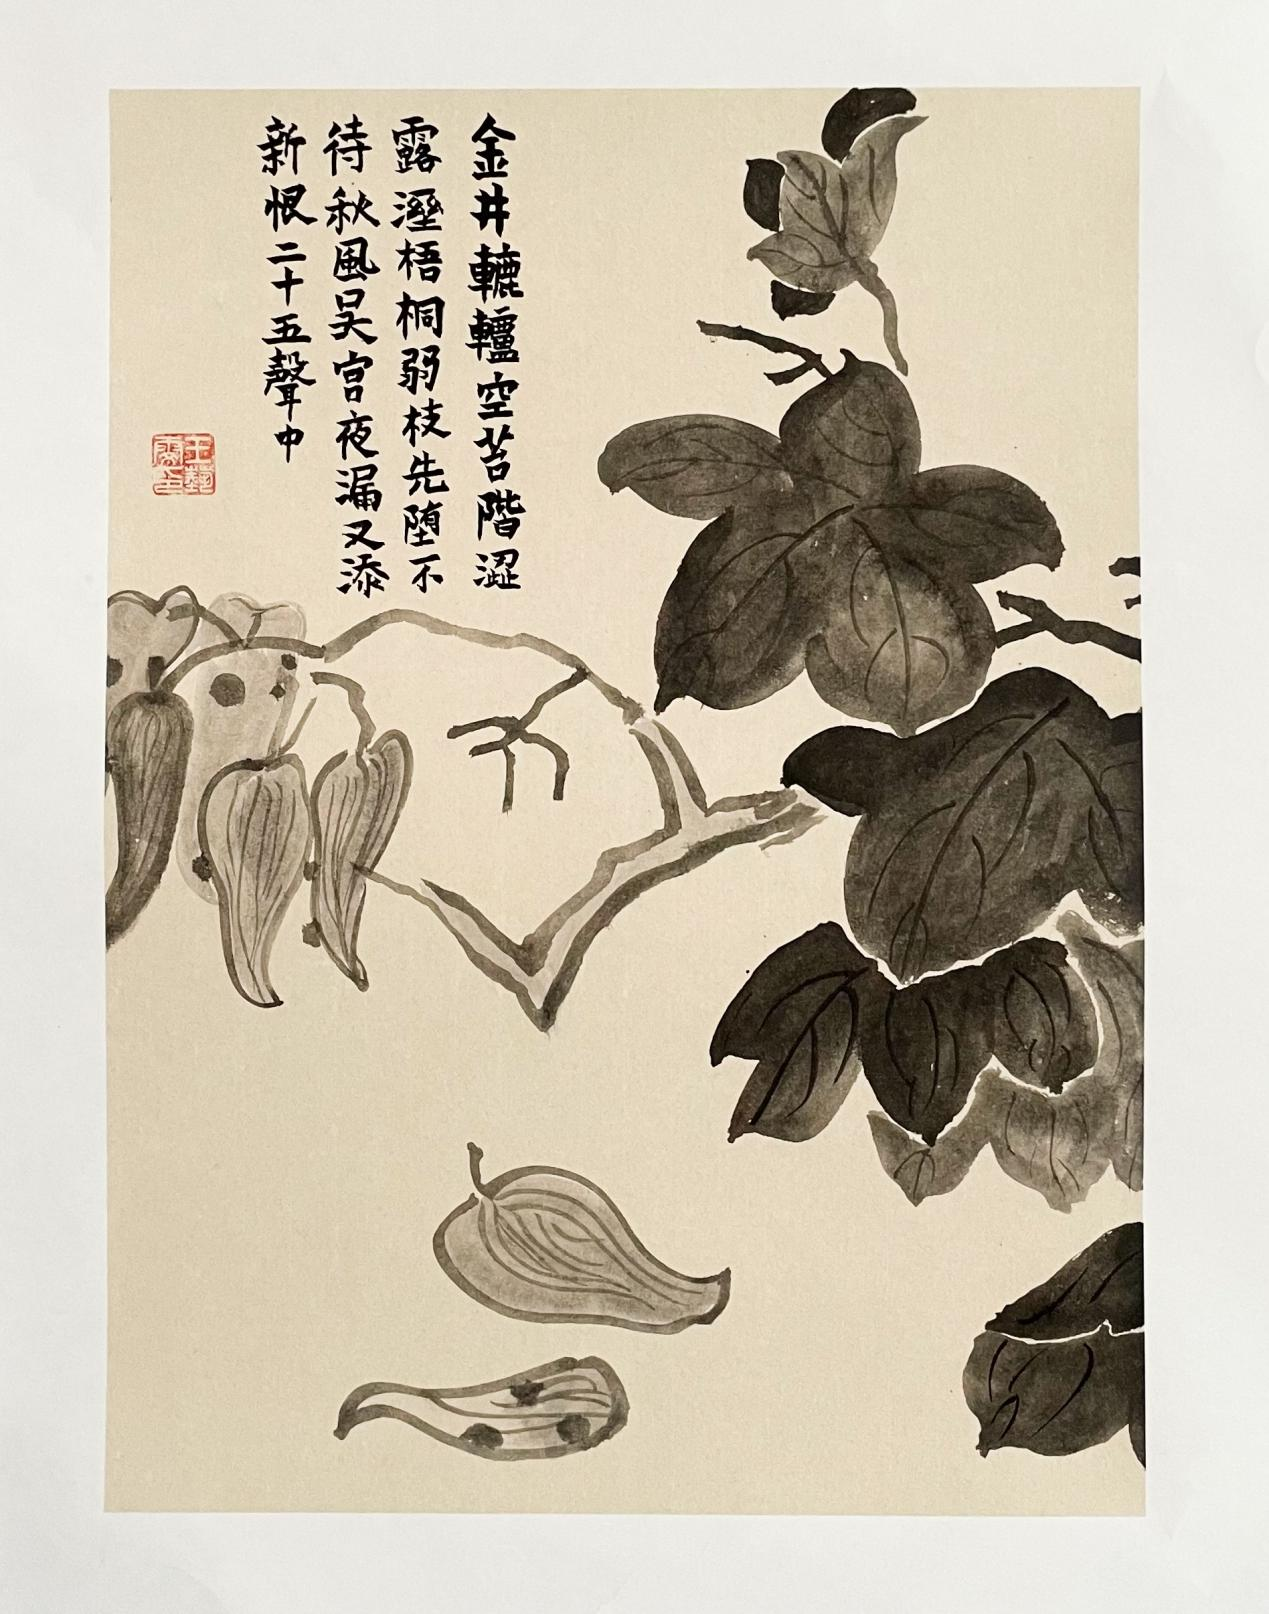 金井轆轤空苔階澀
露溼梧桐弱枝先堕不
待秋風吴宮夜漏又添
新恨二十五聲中